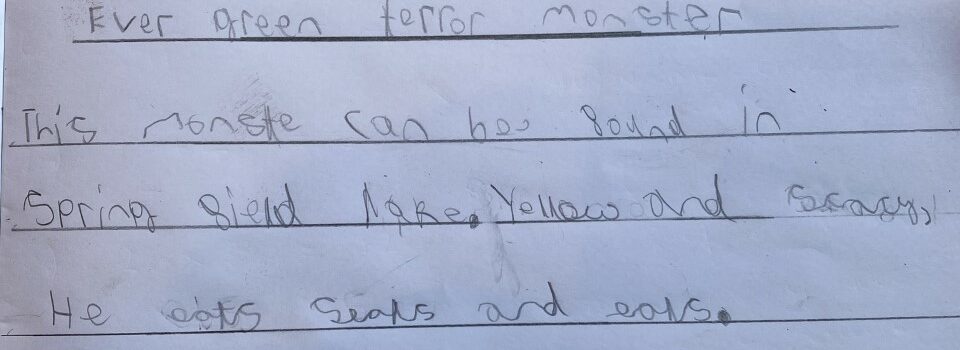 Ever green terror monster
This monste can be found in
Spring field lake. Yellow and scary,
He eats seals and eals.